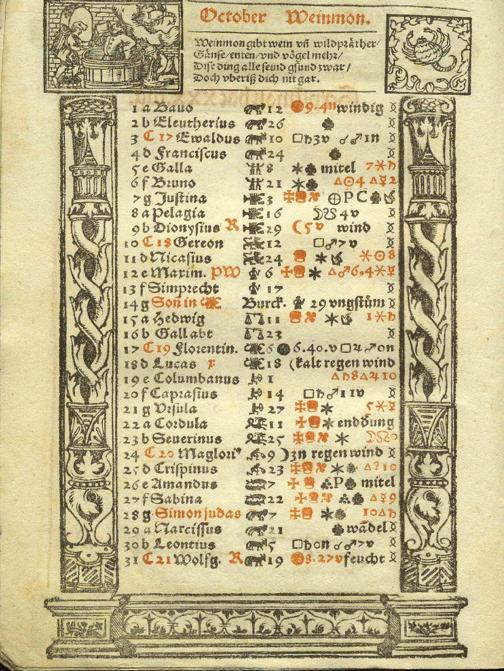 October Weinmon.
Weinmon gibt wein vñ wildpräther/
Gänse/enten/vnd vögel mehr/
Diß ding alle seind gsund zwar/
Doch vberiß dich nit gar.
1 a Bavo 12 9.4n windig
2 b Eleutherius 26
3 C 17 Ewaldus 10 □♄3v ☌♂1n
4 d Franciscus 24
5 e Galla 8 mitel
6 f Bruno 21
7 g Justina 3 ⊕PC
8 a Pelagia 16 4v
9 b Dionysius R 29 (5v wind
10 C 18 Gereon 12 □♂7v
11 d Nicasius 24
12 e Maxim. PW 6
13 f Simprecht 17
14 g Son in Burck. 29 vngstüm
15 a Hedwig 11
16 b Gall abt 23
17 C 19 Florentin. 6 6.40.v □♃7on
18 d Lucas r 18 (kalt regen wind
19 e Columbanus 1
20 f Caprasius 14 □♄♂11v
21 g Vrsula 27
22 a Cordula 11 enddung
23 b Severinus 25
24 C 20 Maglori 9 )3n regen wind
25 d Crispinus 23
26 e Amandus 7 P mitel
27 f Sabina 22
28 g Simon Judas 7
29 a Narcissus 21 wadel
30 b Leontius 5 □♄on ☌♂7v
31 C 21 Wolfg. R 19 8.27v feucht